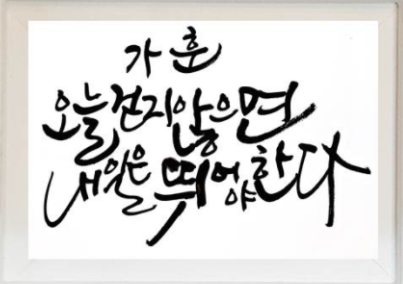 가훈
오늘 걷지 않으면
내일은 뛰어야 한다